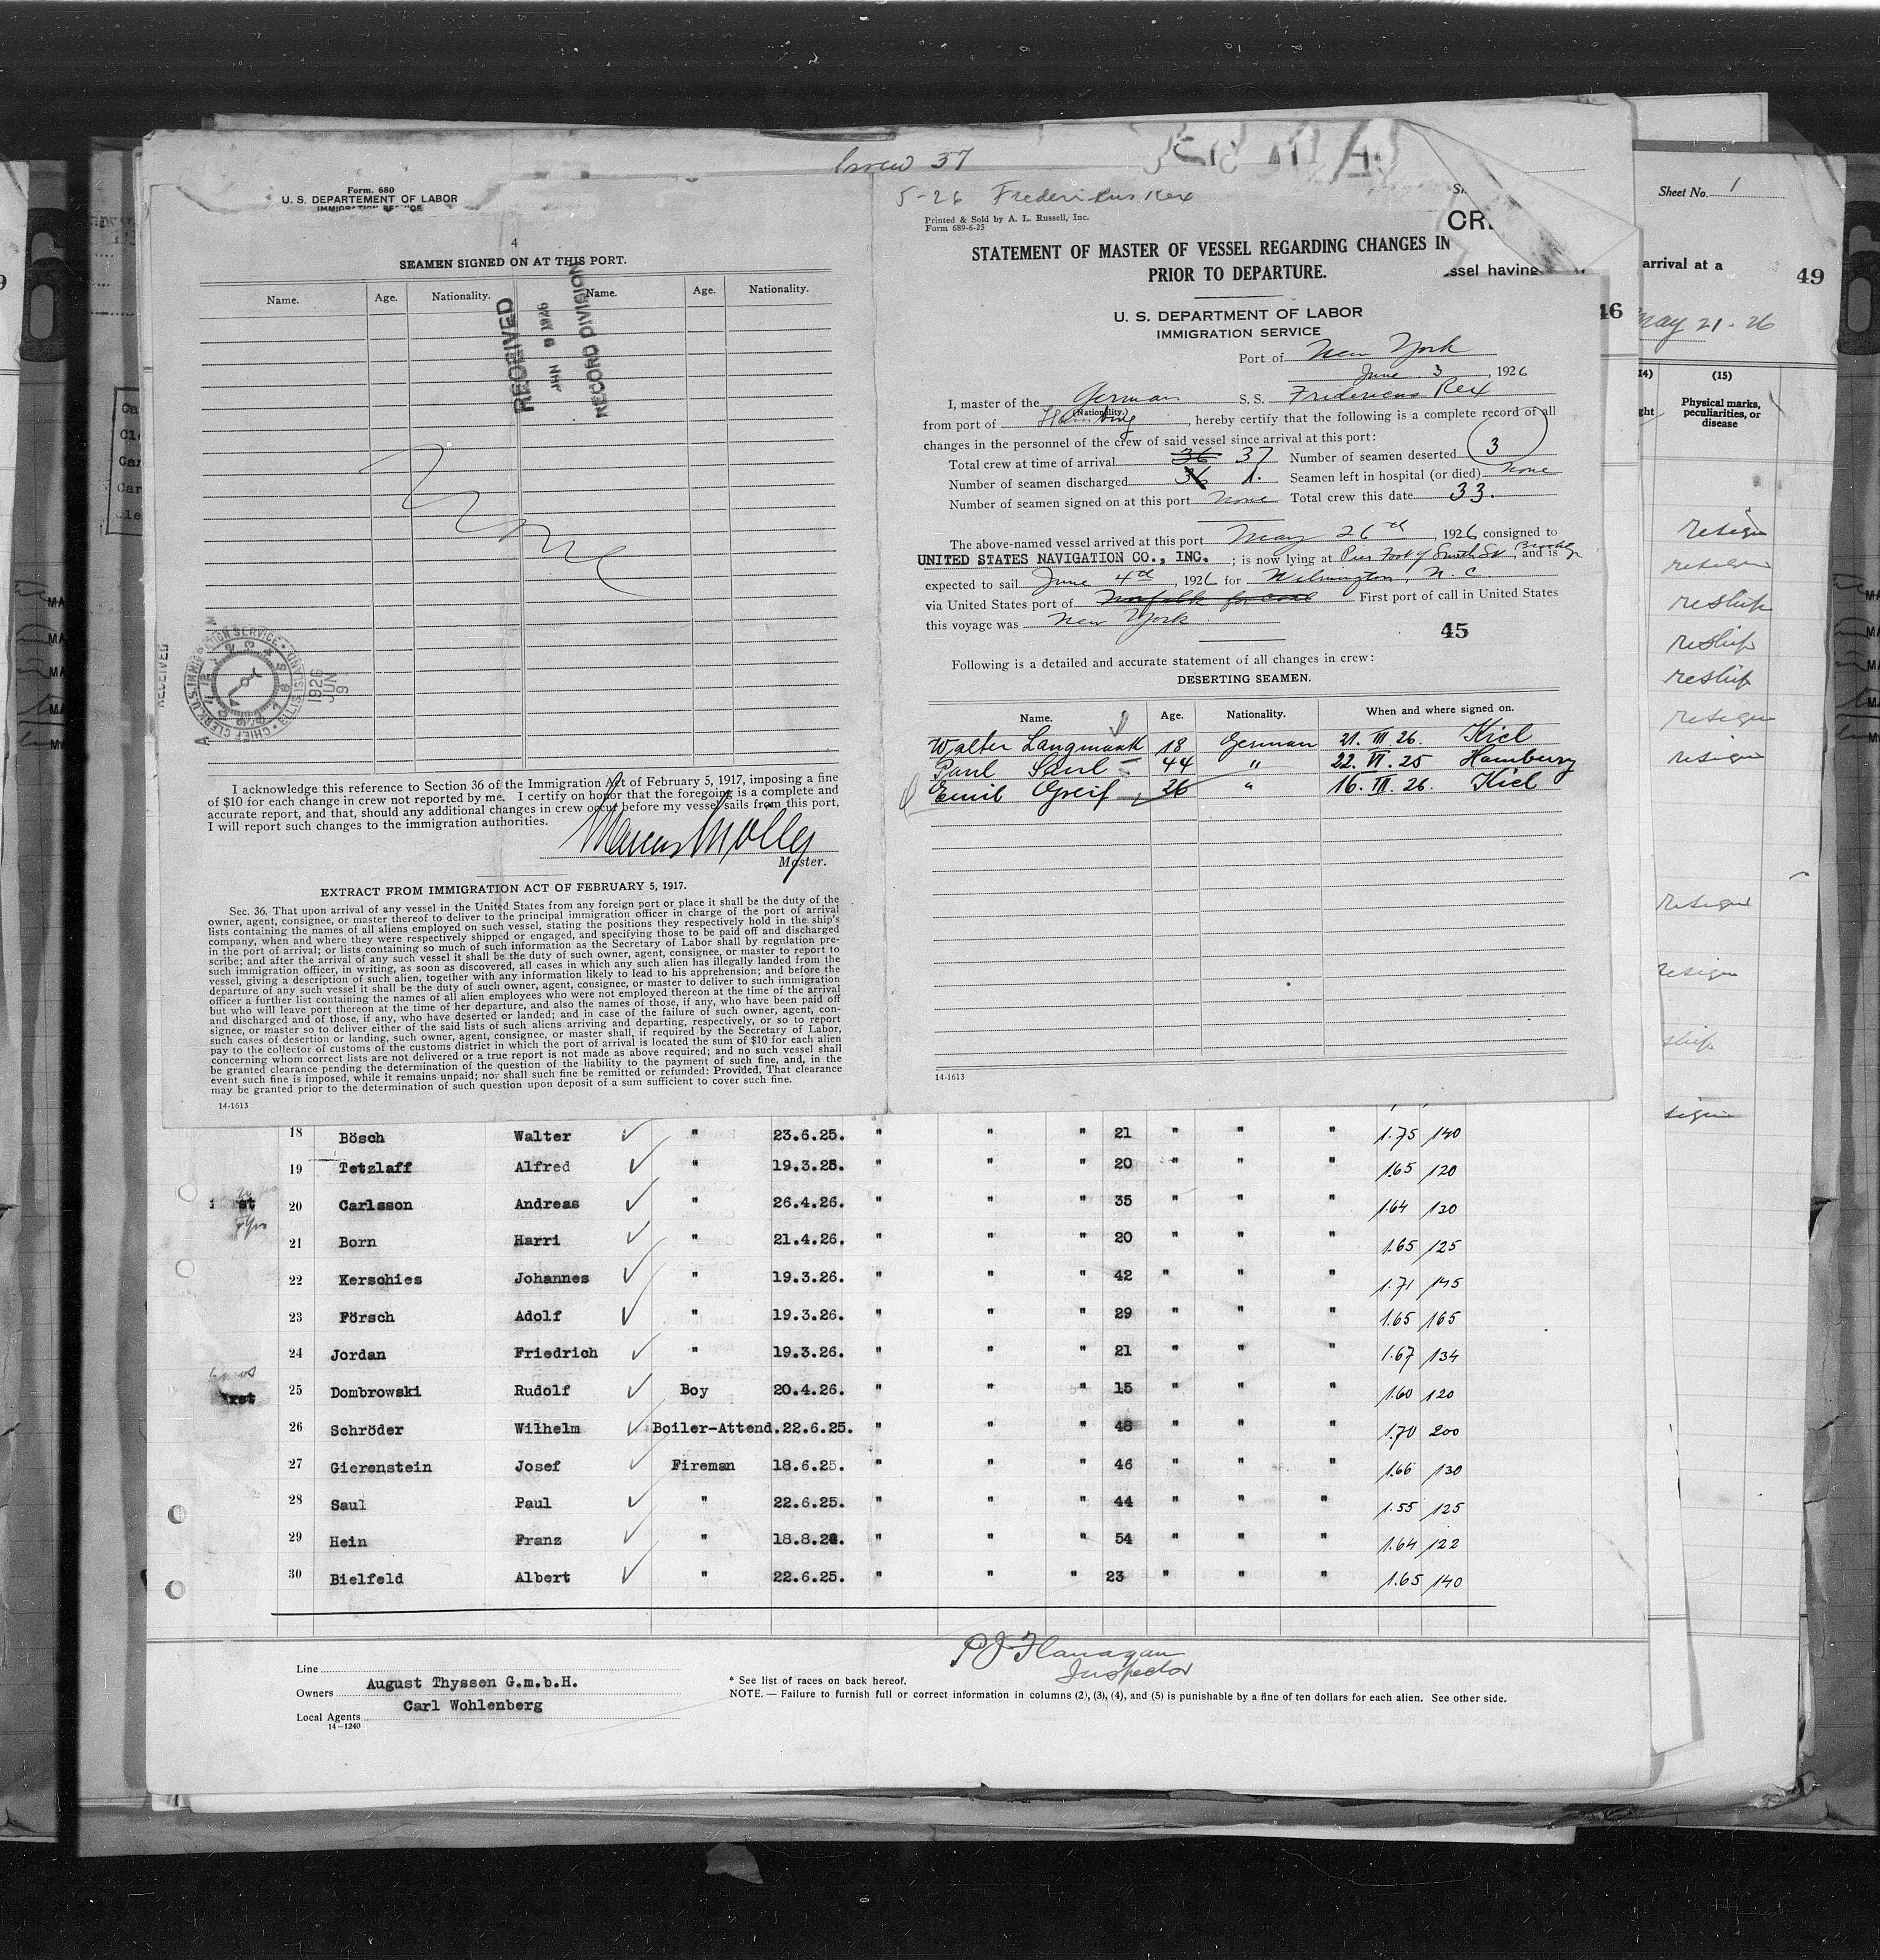 Crew 37
Form. 680
U. S. DEPARTEMENT OF LABOR
IMMIGRATION SERVICE
4
SEAMEN SIGNED ON AT THIS PORT.
Name. Age. Nationality. Name. Age. Nationality.
RECEIVED
JUN 9 1926
RECORD DIVISION
None
RECEIVED
CHIEF CLERK U.S. IMMIGRATION SERVICE
1926 JUN 9
I acknowledge this reference to Section 36 of the Immigration Act of February 5, 1917, imposing a fine
of $10 for each change in crew not reported by me. I certify on honor that the foregoing is a complete and
accurate report, and that, should any additional changes in crew occur before my vessel sails from this port,
I will report such changes to the immigration authorities.
Master.
EXTRACT FROM IMMIGRATION ACT OF FEBRUARY 5, 1917.
Sec. 36. That upon arrival of any vessel in the United States from any foreign port or place it shall be the duty of the
owner, agent, consignee, or master thereof to deliver to the principal immigration officer in charge of the port of arrival
lists containing the names of all aliens employed on such vessel, stating the positions they respectively hold in the ship's
company, when and where they were respectively shipped or engaged, and specifying those to be paid off and discharged
in the port of arrival; or lists containing so much of such information as the Secretary of Labor shall by regulation pre-
scribe; and after the arrival of any such vessel it shall be the duty of such owner, agent, consignee, or master to report to
such immigration officer, in writing, as soon as discovered, all cases in which any such alien has illegally landed from the
vessel, giving a description of such alien, together with any information likely to lead to his apprehension; and before the
departure of any such vessel it shall be the duty of such owner, agent, consignee, or master to deliver to such immigration
officer a further list containing the names of all alien employees who were not employed thereon at the time of the arrival
but who will leave port thereon at the time of her departure, and also the names of those, if any, who have been paid off
and discharged and of those, if any, who have deserted or landed; and in case of the failure of such owner, agent, con-
signee, or master so to deliver either of the said lists of such aliens arriving and departing, respectively, or so to report
such cases of desertion or landing, such owner, agent, consignee, or master shall, if required by the Secretary of Labor,
pay to the collector of customs of the customs district in which the port of arrival is located the sum of $10 for each alien
concerning whom correct lists are not delivered or a true report is not made as above required; and no such vessel shall
be granted clearance pending the determination of the question of the liability to the payment of such fine, and, in the
event such fine is imposed, while it remains unpaid; nor shall such fine be remitted or refunded: Provided, That clearance
may be granted prior to the determination of such question upon deposit of a sum sufficient to cover such fine.
14-1613
5-26 Fredericus Rex
Printed & Sold by A. L. Russell, Inc.
Form 689-6-25
STATEMENT OF MASTER OF VESSEL REGARDING CHANGES IN
PRIOR TO DEPARTURE.
U. S. DEPARTMENT OF LABOR
IMMIGRATION SERVICE
Port of New York
June 3, 1926
I, master of the German S. S. Fridericus Rex
(Nationality.)
from port of Hamburg, hereby certify that the following is a complete record of all
changes in the personnel of the crew of said vessel since arrival at this port:
Total crew at time of arrival 36 37 Number of seamen deserted 3
Number of seamen discharged 36 1. Seamen left in hospital (or died) none
Number of seamen signed on at this port None Total crew this date 33.
The above-named vessel arrived at this port May 26th, 1926 consigned to
UNITED STATES NAVIGATION CO., INC. ; is now lying at Pier Foot of Smith St, Brooklyn and is
expected to sail June 4th, 1926 for Wilmington, N. C.
via United States port of Norfolk for coal First port of call in United States
this voyage was New York
45
Following is a detailed and accurate statement of all changes in crew:
DESERTING SEAMEN.
Name. Age. Nationality. When and where signed on.
Walter Langmaak 18 German 21. III 26. Kiel
Paul Saul 44 " 22. VI. 25 Hamburg
Emil Greif 26 " 16. III. 26. Kiel
14-1613
CR
ssel having
46
Sheet No. 1
arrival at a
49
May 21-26
(15)
Physical marks, peculiarities, or disease
resign
resign
reship
reship
reship
resign
resign
resign
resign
ship
sign
18 Bösch Walter " 23.6.25. " " " 21 " " " 1.75 140
19 Tetzlaff Alfred " 19.3.26. " " " 20 " " " 1.65 120
20 Carlsson Andreas " 26.4.26. " " " 35 " " " 1.64 130
21 Born Harri " 21.4.26. " " " 20 " " " 1.65 125
22 Kerschies Johannes " 19.3.26. " " " 42 " " " 1.71 145
23 Försch Adolf " 19.3.26. " " " 29 " " " 1.65 165
24 Jordan Friedrich " 19.3.26. " " " 21 " " " 1.67 134
25 Dombrowski Rudolf Boy 20.4.26. " " " 15 " " " 1.60 120
26 Schröder Wilhelm Boiler-Attend. 22.6.25. " " " 48 " " " 1.70 200
27 Gierenstein Josef Fireman 18.6.25. " " " 46 " " " 1.66 130
28 Saul Paul " 22.6.25. " " " 44 " " " 1.55 125
29 Hein Franz " 18.8.24. " " " 54 " " " 1.64 122
30 Bielfeld Albert " 22.6.25. " " " 23 " " " 1.65 140
P J Flanagan
Inspector
Line
Owners August Thyssen G.m.b.H.
Carl Wohlenberg
Local Agents
14-1240
* See list of races on back hereof.
NOTE. — Failure to furnish full or correct information in columns (2), (3), (4), and (5) is punishable by a fine of ten dollars for each alien. See other side.